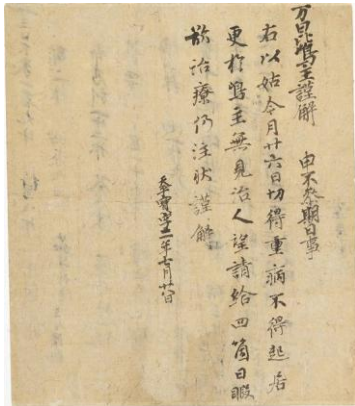 万昆嶋主謹解　申不参期日事
右以姑今月廿六日切得重病不得起居
更於嶋主無見治人望請給四箇日暇
欲治療仍注状謹解
天平寶字二年七月廿日